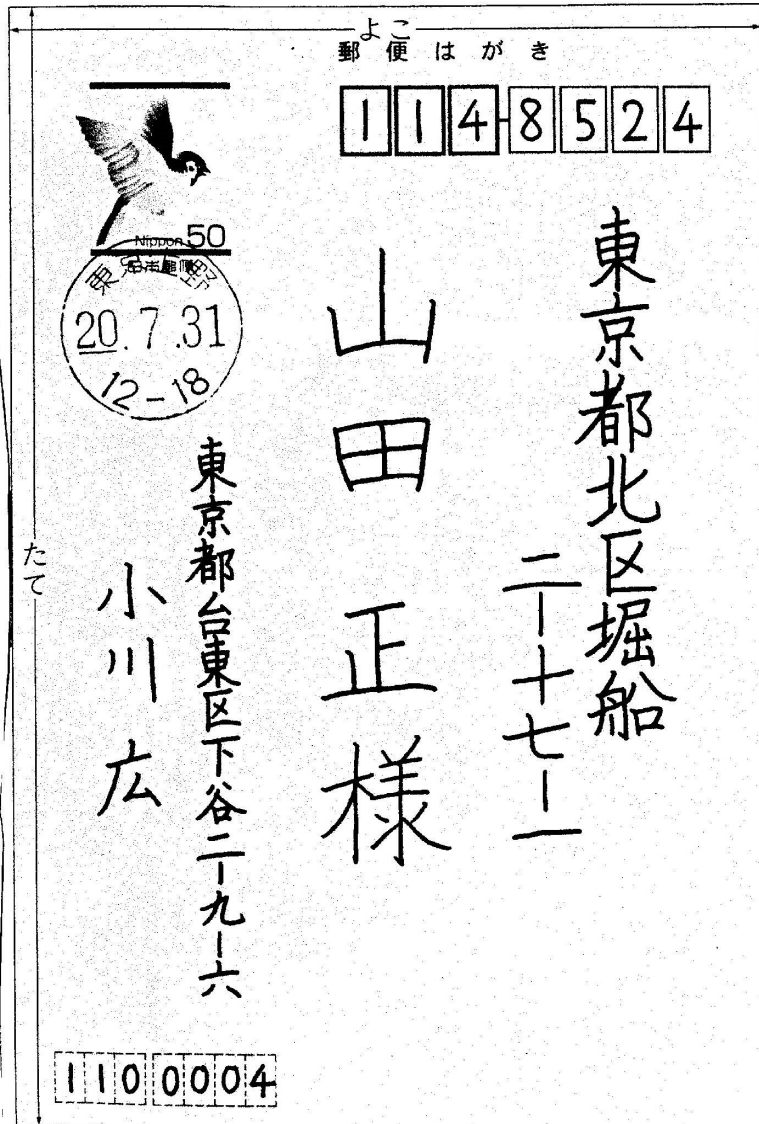 よこ
郵便はがき
114-8524
Nippon 50
日本郵便
20.7.31
12-18
東京都北区堀船
二-十七-一
山田 正様
東京都台東区下谷二-九-六
小川 広
110 0004
たて